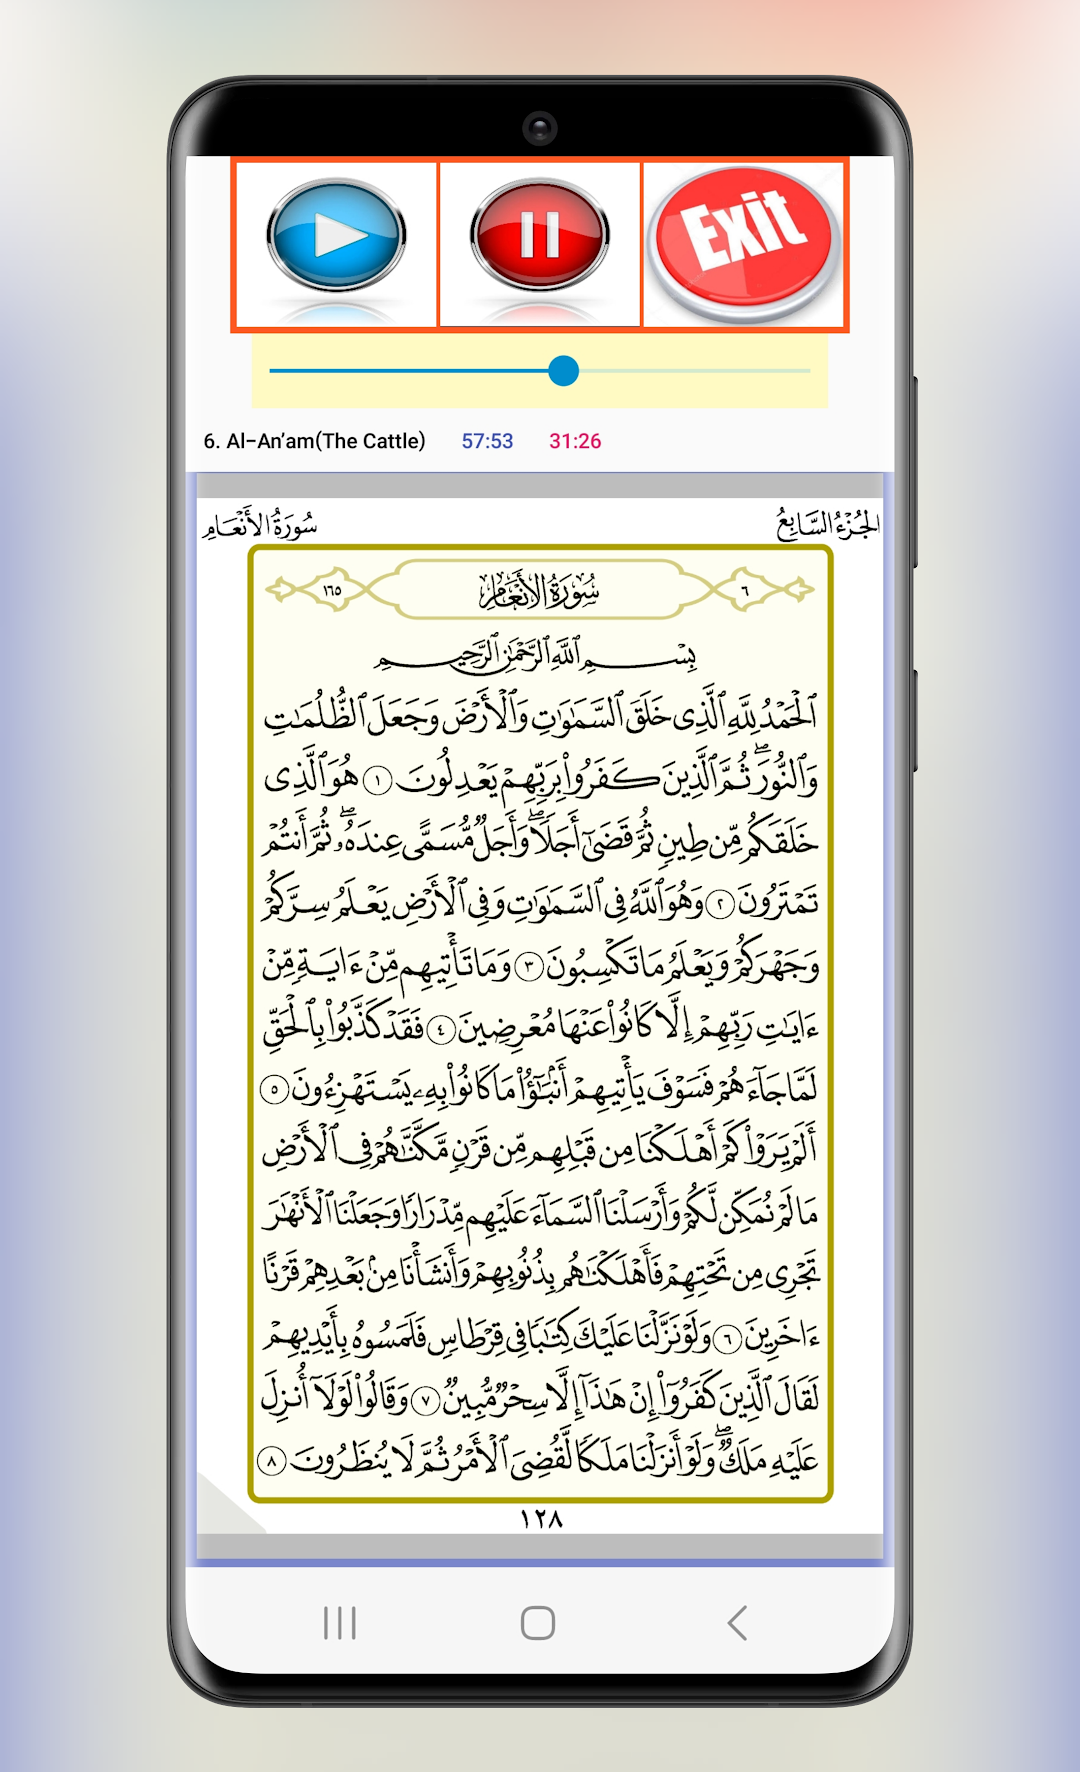 Exit
6. Al-An’am(The Cattle) 57:53 31:26
الجُزْءُ السَّابِعُ سُورَةُ الأَنْعَامِ
٦ سُورَةُ الأَنْعَامِ ١٦٥
بِسْمِ ٱللَّهِ ٱلرَّحْمَٰنِ ٱلرَّحِيمِ
ٱلْحَمْدُ لِلَّهِ ٱلَّذِى خَلَقَ ٱلسَّمَٰوَٰتِ وَٱلْأَرْضَ وَجَعَلَ ٱلظُّلُمَٰتِ
وَٱلنُّورَۖ ثُمَّ ٱلَّذِينَ كَفَرُوا۟ بِرَبِّهِمْ يَعْدِلُونَ ١ هُوَ ٱلَّذِى
خَلَقَكُم مِّن طِينٍ ثُمَّ قَضَىٰٓ أَجَلًاۖ وَأَجَلٌ مُّسَمًّى عِندَهُۥۖ ثُمَّ أَنتُمْ
تَمْتَرُونَ ٢ وَهُوَ ٱللَّهُ فِى ٱلسَّمَٰوَٰتِ وَفِى ٱلْأَرْضِ يَعْلَمُ سِرَّكُمْ
وَجَهْرَكُمْ وَيَعْلَمُ مَا تَكْسِبُونَ ٣ وَمَا تَأْتِيهِم مِّنْ ءَايَةٍ مِّنْ
ءَايَٰتِ رَبِّهِمْ إِلَّا كَانُوا۟ عَنْهَا مُعْرِضِينَ ٤ فَقَدْ كَذَّبُوا۟ بِٱلْحَقِّ
لَمَّا جَآءَهُمْ فَسَوْفَ يَأْتِيهِمْ أَنۢبَٰٓؤُا۟ مَا كَانُوا۟ بِهِۦ يَسْتَهْزِءُونَ ٥
أَلَمْ يَرَوْا۟ كَمْ أَهْلَكْنَا مِن قَبْلِهِم مِّن قَرْنٍ مَّكَّنَّٰهُمْ فِى ٱلْأَرْضِ
مَا لَمْ نُمَكِّن لَّكُمْ وَأَرْسَلْنَا ٱلسَّمَآءَ عَلَيْهِم مِّدْرَارًا وَجَعَلْنَا ٱلْأَنْهَٰرَ
تَجْرِى مِن تَحْتِهِمْ فَأَهْلَكْنَٰهُم بِذُنُوبِهِمْ وَأَنشَأْنَا مِنۢ بَعْدِهِمْ قَرْنًا
ءَاخَرِينَ ٦ وَلَوْ نَزَّلْنَا عَلَيْكَ كِتَٰبًا فِى قِرْطَاسٍ فَلَمَسُوهُ بِأَيْدِيهِمْ
لَقَالَ ٱلَّذِينَ كَفَرُوٓا۟ إِنْ هَٰذَآ إِلَّا سِحْرٌ مُّبِينٌ ٧ وَقَالُوا۟ لَوْلَآ أُنزِلَ
عَلَيْهِ مَلَكٌۖ وَلَوْ أَنزَلْنَا مَلَكًا لَّقُضِىَ ٱلْأَمْرُ ثُمَّ لَا يُنظَرُونَ ٨
١٢٨